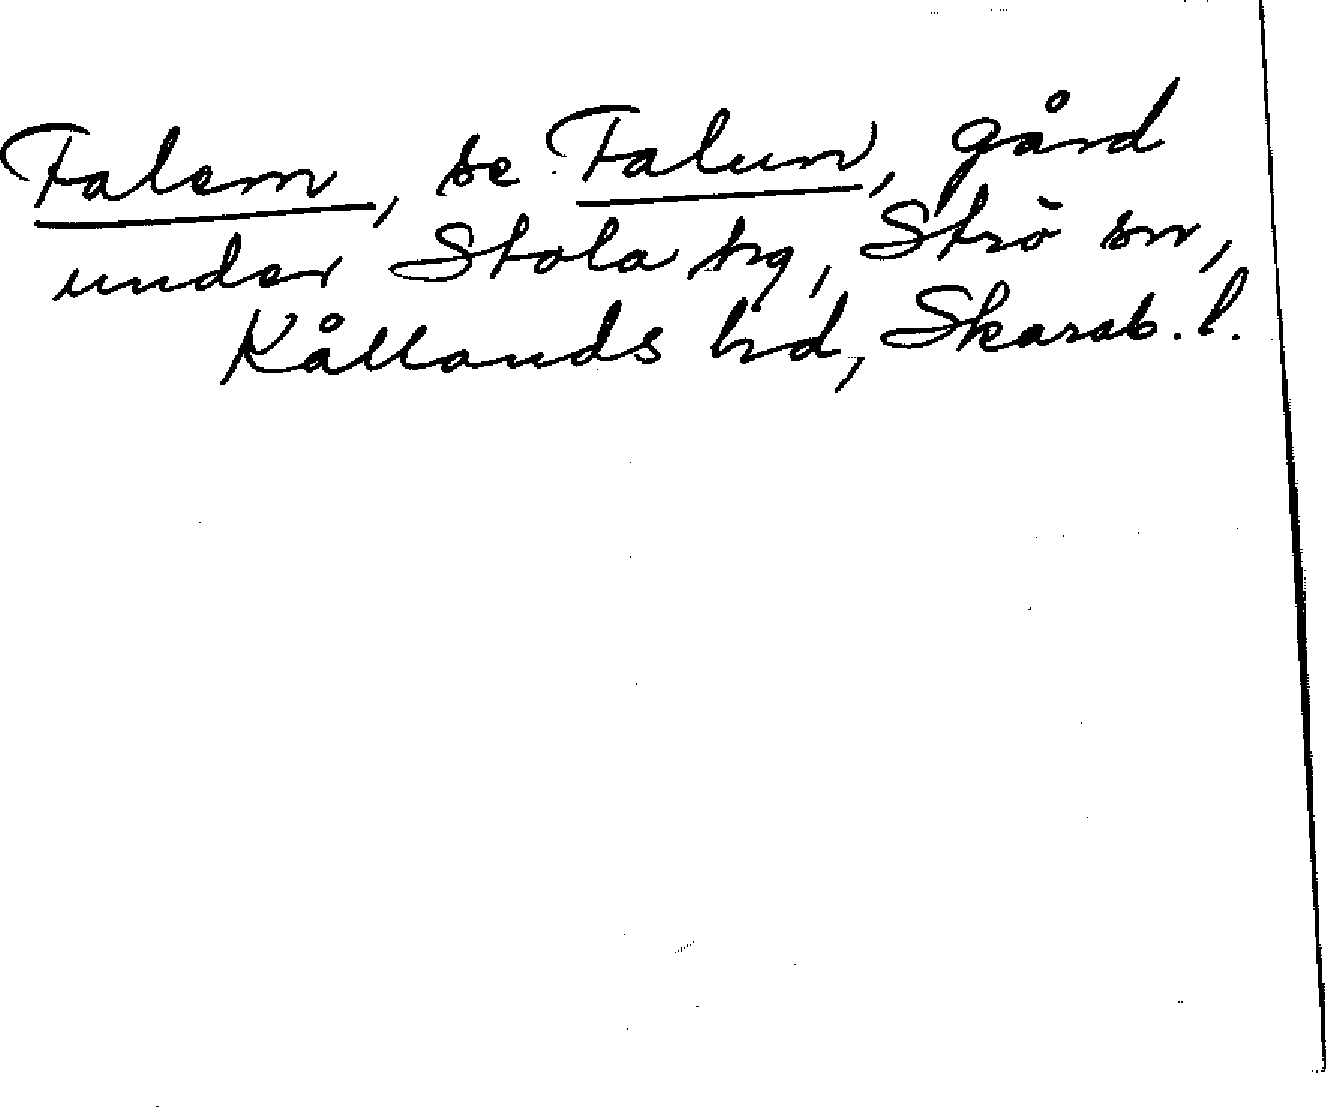 Falem, se Falun, gård
under Stola hg, Strö sn,
Kållands hd, Skarab. l.